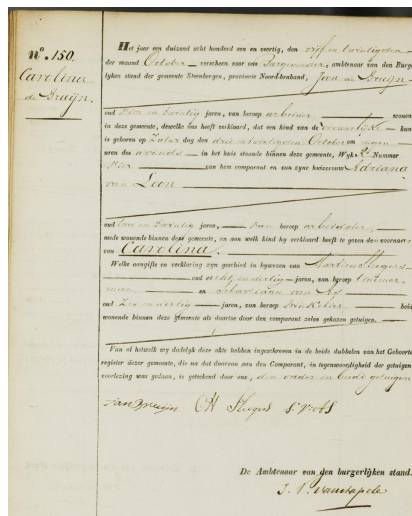 nº. 150.
Carolina
de Bruijn.
Het jaar een duizend acht honderd een en veertig, den vijf en twintigsten
der maand October verscheen voor ons Burgemeester, ambtenaar van den Burger-
lyken stand der gemeente Steenbergen, provincie Noord-braband, Jan de Bruijn
oud Vier en Twintig jaren, van beroep arbeider wonende
in deze gemeente, dewelke ons heeft verklaard, dat een kind van de vrouwelijke kunne
is geboren op Zatur dag den drie en twintigsten October om negen
uren des avonds in het huis staande binnen deze gemeente, Wyk Nummer
Vier van hem comparant en van zyne huisvrouw Adriana
van Loon
oud Een en Twintig jaren, van beroep arbeidster,
mede wonende binnen deze gemeente, en aan welk kind hy verklaard heeft te geven den voornaam
van Carolina.
Welke aangifte en verklaring zyn geschied in bywezen van Martien Sluijters
oud acht en dertig jaren, van beroep
en van As
oud Zes en dertig jaren, van beroep Winkelier beide
wonende binnen deze gemeente als daartoe door den comparant zelve gekozen getuigen.
Van al hetwelk wy dadelyk deze akte hebben ingeschreven in de beide dubbelen van het Geboorte
register dezer gemeente, die na dat daarvan aan den Comparant, in tegenwoordigheid der getuigen
voorlezing was gedaan, is geteekend door ons, den vader en beide getuigen
Jan Bruijn S: V: AS
De Ambtenaar van den burgerlyken stand.